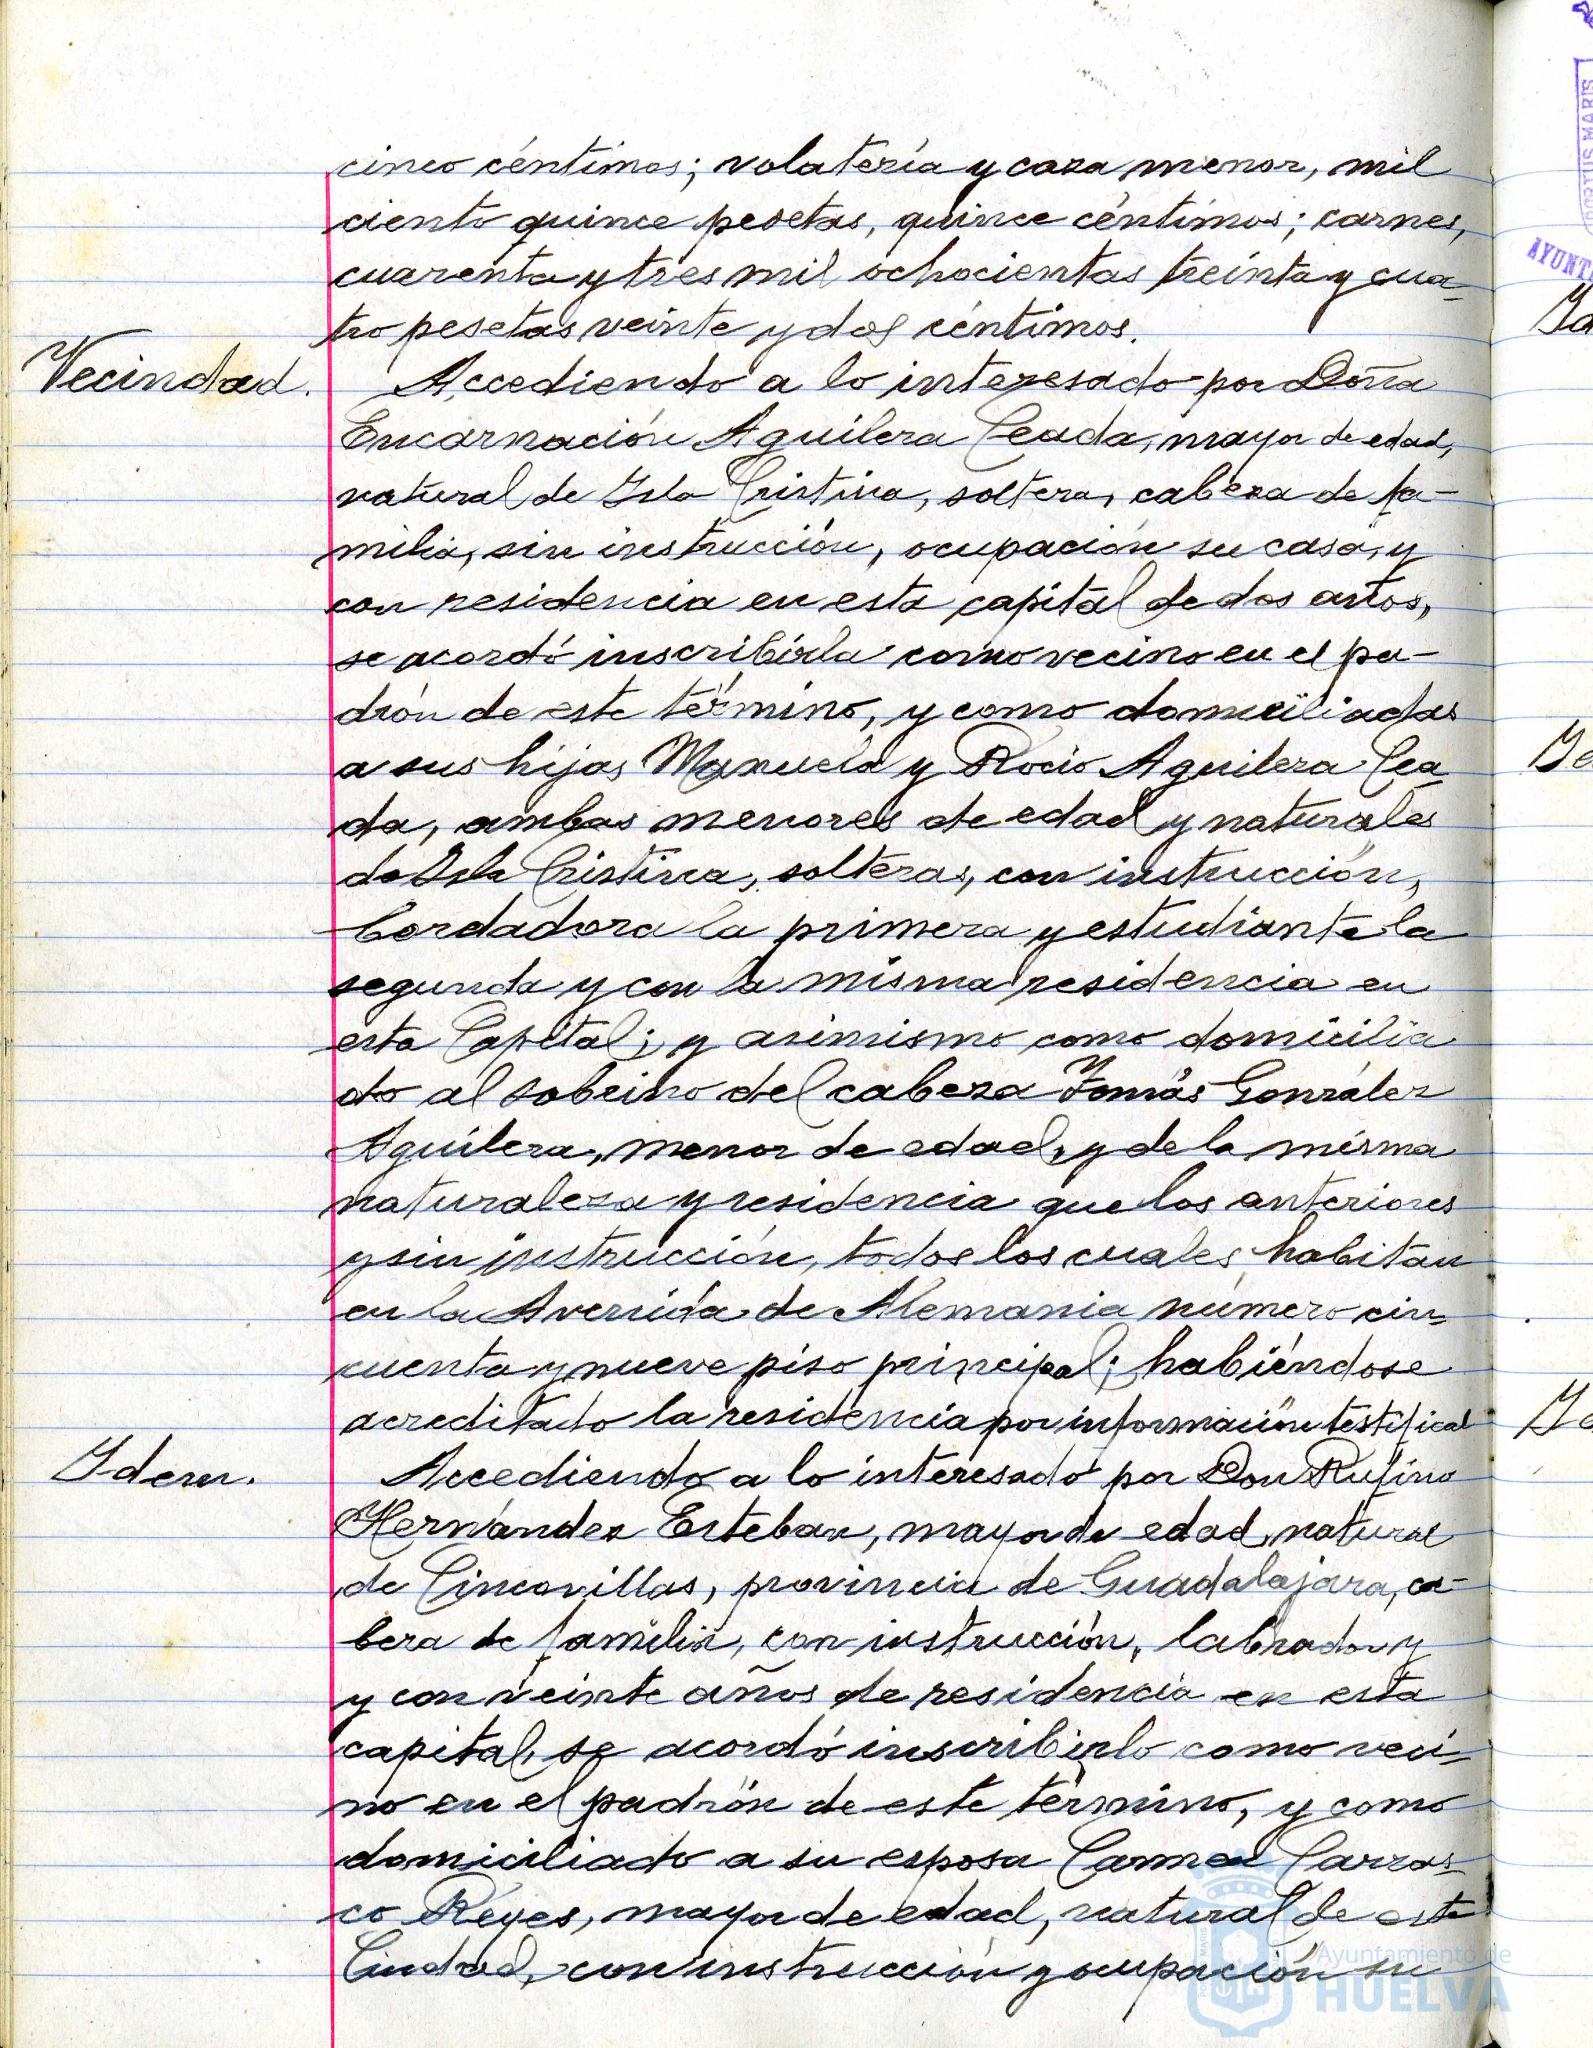 cinco céntimos; volatería y caza menor, mil
ciento quince pesetas, quince céntimos; carnes,
cuarenta y tres mil ochocientas treinta y cua-
tro pesetas veinte y dos céntimos.
Vecindad.
Accediendo a lo interesado por Doña
Encarnación Aguilera Ceada, mayor de edad,
natural de Isla Cristina, soltera, cabeza de fa-
milia, sin instrucción, ocupación su casa, y
con residencia en esta capital de dos años,
se acordó inscribirla como vecino en el pa-
drón de este término, y como domiciliadas
a sus hijas Manuela y Rocio Aguilera Cea-
da, ambas menores de edad y naturales
de Isla Cristina, solteras, con instrucción,
bordadora la primera y estudiante la
segunda y con la misma residencia en
esta Capital; y asimismo como domicilia
do al sobrino del cabeza Tomás González
Aguilera, menor de edad, y de la misma
naturaleza y residencia que los anteriores
y sin instrucción, todos los cuales habitan
en la Avenida de Alemania número cin-
cuenta y nueve piso principal; habiéndose
acreditado la residencia por información testifical
Idem.
Accediendo a lo interesado por Don Rufino
Hernández Esteban, mayor de edad, natural
de Cincovillas, provincia de Guadalajara, ca-
beza de familia, con instrucción, labrador y
y con veinte años de residencia en esta
capital, se acordó inscribirlo como veci-
no en el padrón de este término, y como
domiciliado a su esposa Carmen Carras-
co Reyes, mayor de edad, natural de esta
Ciudad, con instrucción y ocupación su
Ayuntamiento de
HUELVA